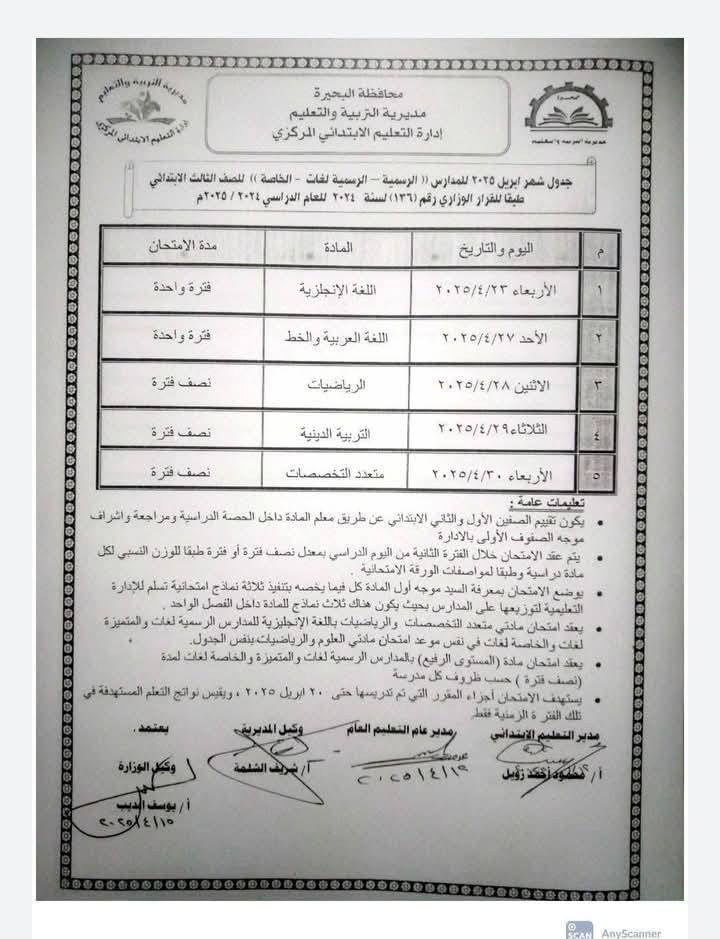 محافظة البحيرة
مديرية التربية والتعليم
إدارة التعليم الابتدائي المركزي
مديرية التربية والتعليم
إدارة التعليم الابتدائي المركزي
جدول شهر ابريل ٢٠٢٥ للمدارس (( الرسمية – الرسمية لغات - الخاصة )) للصف الثالث الابتدائي
طبقا للقرار الوزاري رقم (١٣٦) لسنة ٢٠٢٤ للعام الدراسي ٢٠٢٤ / ٢٠٢٥م
م اليوم والتاريخ المادة مدة الإمتحان
١ الأربعاء ٢٠٢٥/٤/٢٣ اللغة الإنجلزية فترة واحدة
٢ الأحد ٢٠٢٥/٤/٢٧ اللغة العربية والخط فترة واحدة
٣ الاثنين ٢٠٢٥/٤/٢٨ الرياضيات نصف فترة
٤ الثلاثاء٢٠٢٥/٤/٢٩ التربية الدينية نصف فترة
٥ الأربعاء ٢٠٢٥/٤/٣٠ متعدد التخصصات نصف فترة
تعليمات عامة :
• يكون تقييم الصفين الأول والثاني الابتدائي عن طريق معلم المادة داخل الحصة الدراسية ومراجعة واشراف
موجه الصفوف الأولى بالادارة
• يتم عقد الامتحان خلال الفترة الثانية من اليوم الدراسي بمعدل نصف فترة أو فترة طبقا للوزن النسبي لكل
مادة دراسية وطبقا لمواصفات الورقة الامتحانية .
• يوضع الامتحان بمعرفة السيد موجه أول المادة كل فيما يخصه بتنفيذ ثلاثة نماذج امتحانية تسلم للإدارة
التعليمية لتوزيعها على المدارس بحيث يكون هناك ثلاث نماذج للمادة داخل الفصل الواحد .
• يعقد امتحان مادتي متعدد التخصصات والرياضيات باللغة الإنجليزية للمدارس الرسمية لغات والمتميزة
لغات والخاصة لغات في نفس موعد امتحان مادتي العلوم والرياضيات بنفس الجدول.
• يعقد امتحان مادة (المستوى الرفيع) بالمدارس الرسمية لغات والمتميزة والخاصة لغات لمدة
(نصف فترة ) حسب ظروف كل مدرسة
• يستهدف الامتحان أجزاء المقرر التي تم تدريسها حتى ٢٠ ابريل ٢٠٢٥ ، ويقيس نواتج التعلم المستهدفة في
تلك الفترة الزمنية فقط.
مدير التعليم الإبتدائي مدير عام التعليم العام وكيل المديرية يعتمد .
أ / محمود أحمد زويل أ/ شريف الشلمة وكيل الوزارة
أ / يوسف الديب
٢٠٢٥/٤/١٥
SCAN AnyScanner